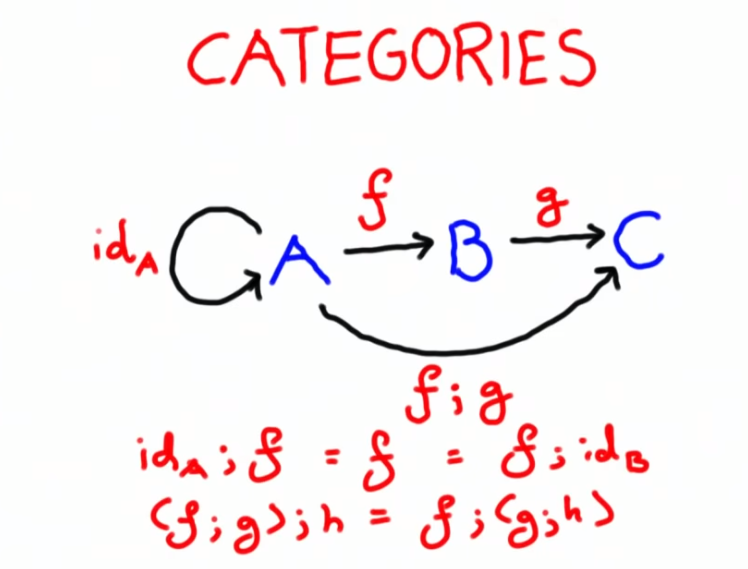 CATEGORIES
f g
id_A A B C
f;g
id_A;f = f = f;id_B
(f;g);h = f;(g;h)